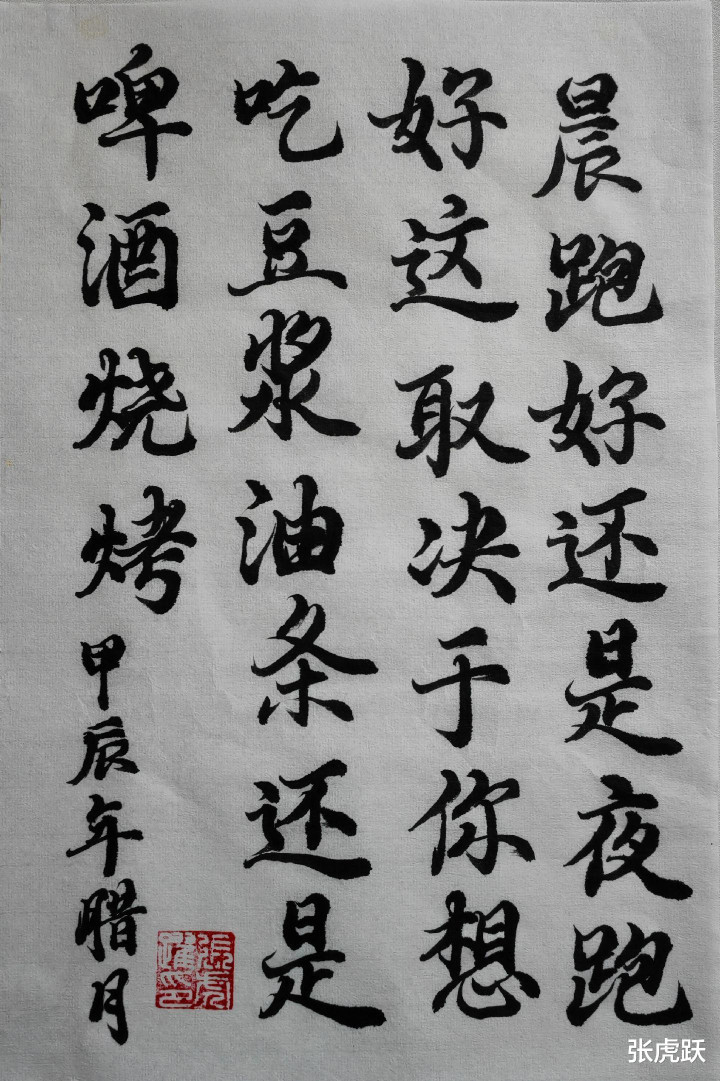 晨跑好还是夜跑
好这取决于你想
吃豆浆油条还是
啤酒烧烤甲辰年腊月
張虎躍印
张虎跃